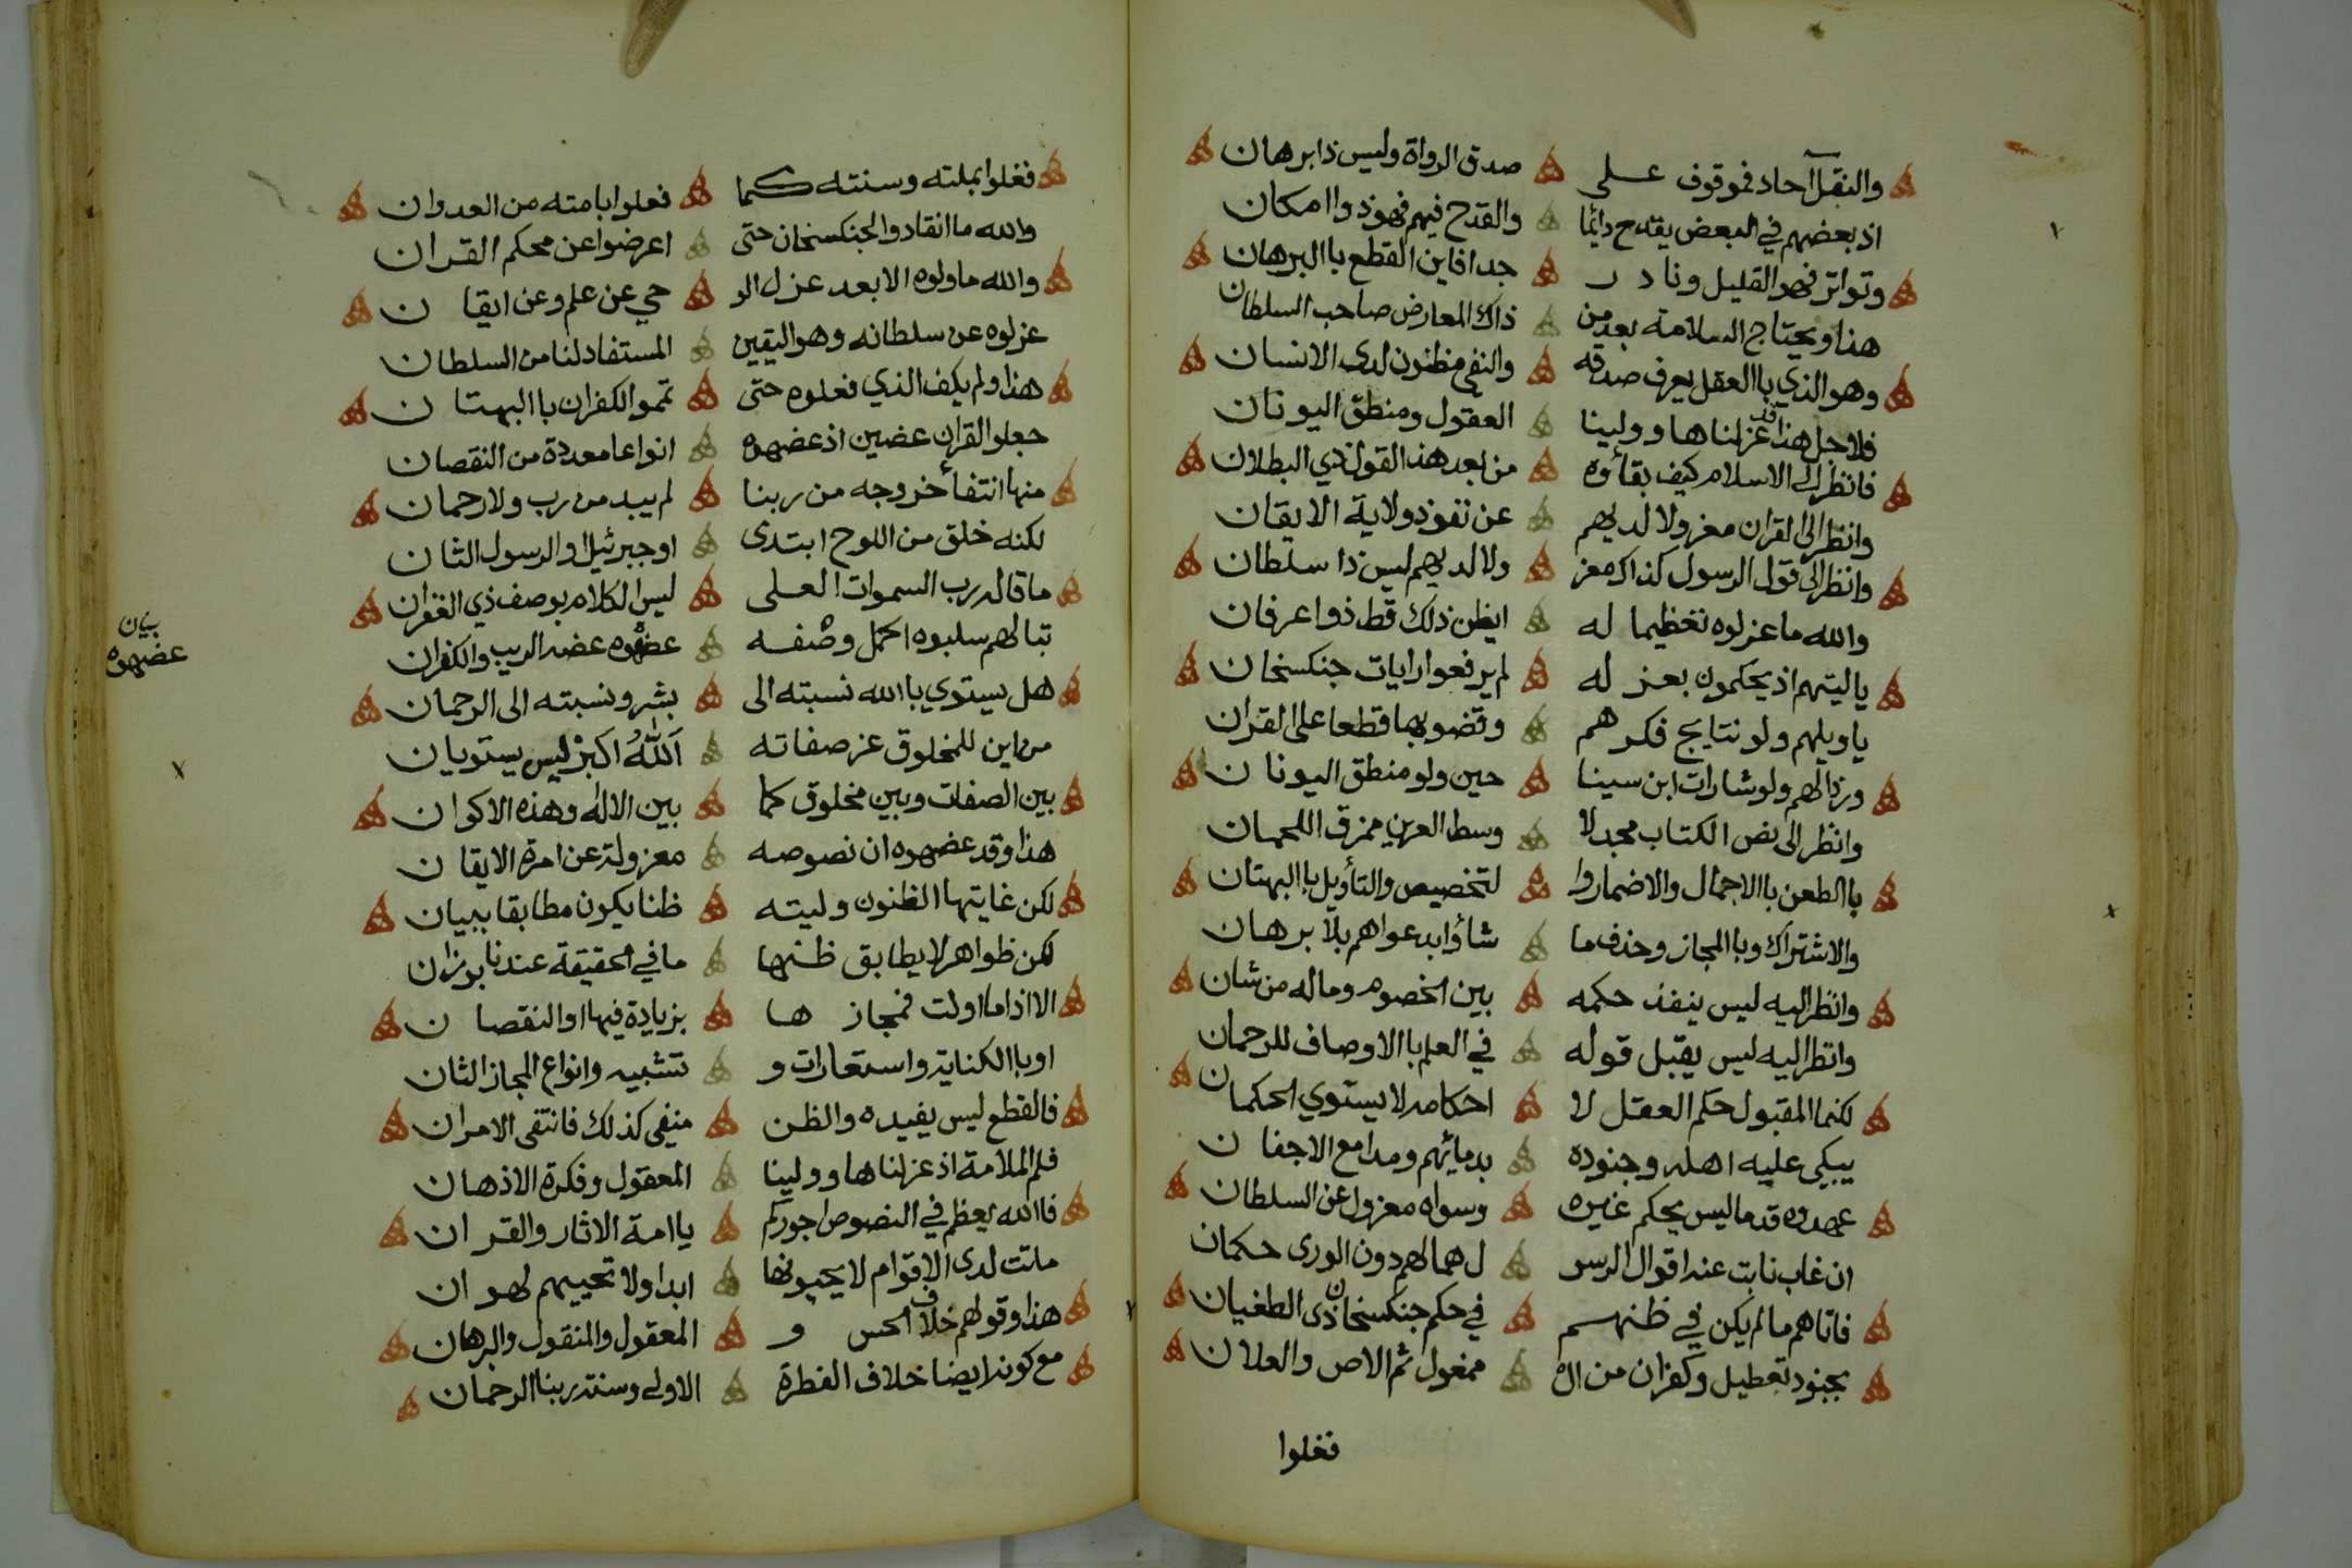 والنقل آحاد فموقوف على صدق الرواة وليس ذا برهان
اذ بعضهم في البعض يقدح دائما والقدح فيهم فهو ذوا امكان
وتواتر فهو القليل ونادر جدا فاين القطع باالبرهان
هذا ويحتاج السلامة بعد من ذاك المعارض صاحب السلطان
وهو الذي باالعقل يعرف صدقه والنفي مظنون لدى الانسان
فلاجل هذا قد عزلناها وولينا العقول ومنطق اليونان
فانظر الى الاسلام كيف بقاؤه من بعد هذا القول ذي البطلان
وانظر الى القران معزولا لديهم عن نفوذ ولاية الايقان
وانظر الى قول الرسول كذاك معز ولا لديهم ليس ذا سلطان
والله ما عزلوه تعظيما له ايظن ذلك قط ذوا عرفان
ياليتهم اذ يحكمون بعزله لم يرفعوا رايات جنكسخان
ياويلهم ولو نتايج فكرهم وقضو بها قطعا على القران
ورذالهم ولو شارات ابن سينا حين ولو منطق اليونان
وانظر الى نص الكتاب مجدلا وسط العرين ممزق اللحمان
باالطعن باالاجمال والاضماروا لتخصيص والتأويل باالبهتان
والاشتراك وباالمجاز وحذف ما شاؤا بدعواهم بلا برهان
وانظر اليه ليس ينفذ حكمه بين الخصوم وماله من شان
وانظر اليه ليس يقبل قوله في العلم باالاوصاف للرحمان
لكنما المقبول حكم العقل لا احكامه لا يستوي الحكمان
يبكي عليه اهله وجنوده بدمائهم ومدامع الاجفان
عهدوه قدما ليس يحكم غيره وسواه معزول عن السلطان
ان غاب نابت عنه اقوال الرسو ل هما لهم دون الورى حكمان
فاتاهم مالم يكن في ظنهم في حكم جنكسخان ذى الطغيان
بجنود تعطيل وكفران من ال ممغول ثم الاص والعلان
فغلوا
فغلوا بملته وسنته كما فعلوا بامته من العدوان
والله ما انقادوا لجنكسخان حتى اعرضوا عن محكم القران
والله ما ولوه الا بعد عزل الو حي عن علم وعن ايقان
عزلوه عن سلطانه وهو اليقين المستفاد لنا من السلطان
هذا ولم يكف الذي فعلوه حتى تمموالكفران باالبهتان
جعلوا القران عضين اذ عضهوه انواعا معددة من النقصان
منها انتفأ خروجه من ربنا لم يبد من رب ولا رحمان
لكنه خلق من اللوح ابتدى اوجبرئيل او الرسول الثان
ما قاله رب السموات العلى ليس الكلام بوصف ذي الغفران
تبا لهم سلبوه اكمل وصفه عضهوه عضه الريب والكفران
بيان عضهوه
هل يستوي باالله نسبته الى بشر ونسبته الى الرحمان
من اين للمخلوق عز صفاته اَللّٰهُ اكبرْ ليس يستويان
بين الصفات وبين مخلوق كما بين الاله وهذه الاكوان
هذا وقد عضهوه ان نصوصه معزولة عن امرة الايقان
لكن غايتها الظنون وليته ظنا يكون مطابقا ببيان
لكن ظواهر لا يطابق ظنها ما في الحقيقة عندنا بوزان
الا اذا ما اولت فمجازها بزيادة فيها او النقصان
اوباالكناية واستعارات و تشبيه وانواع المجاز الثان
فالقطع ليس يفيده والظن منفي كذلك فانتفى الامران
فلم الملامة اذ عزلناها وولينا المعقول وفكرة الاذهان
فاالله يعظم في النصوص اجوركم ياامة الاثار والقران
ماتت لدى الاقوام لا يحيونها ابدا ولا تحييهم لهوان
هذا وقولهم خلاف الحس و المعقول والمنقول والبرهان
مع كونه ايضا خلاف الفطرة الاولى وسنة ربنا الرحمان